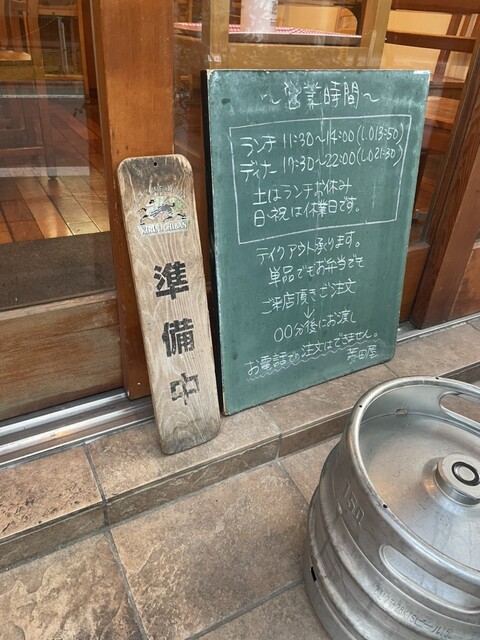 KIRIN ICHIBAN
準備中
～営業時間～
ランチ 11:30～14:00(L.O13:50)
ディナー 17:30～22:00(L.O21:30)
土はランチお休み
日・祝は休業日です。
テイクアウト承ります。
単品でもお弁当でも
ご来店頂きご注文
↓
00分後にお渡し
お電話での注文はできません。